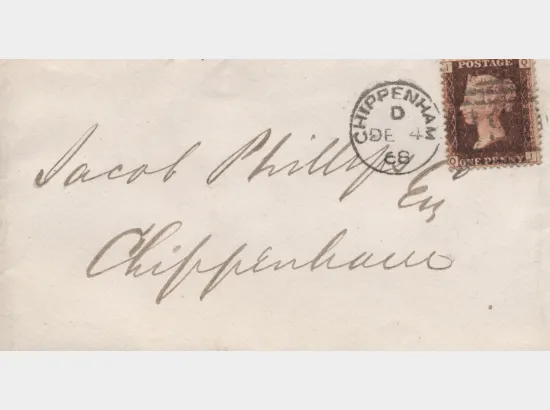 POSTAGE
J Q
CHIPPENHAM
D
DE 4
68
Q J
ONE PENNY
Jacob Phillips
Esq
Chippenham